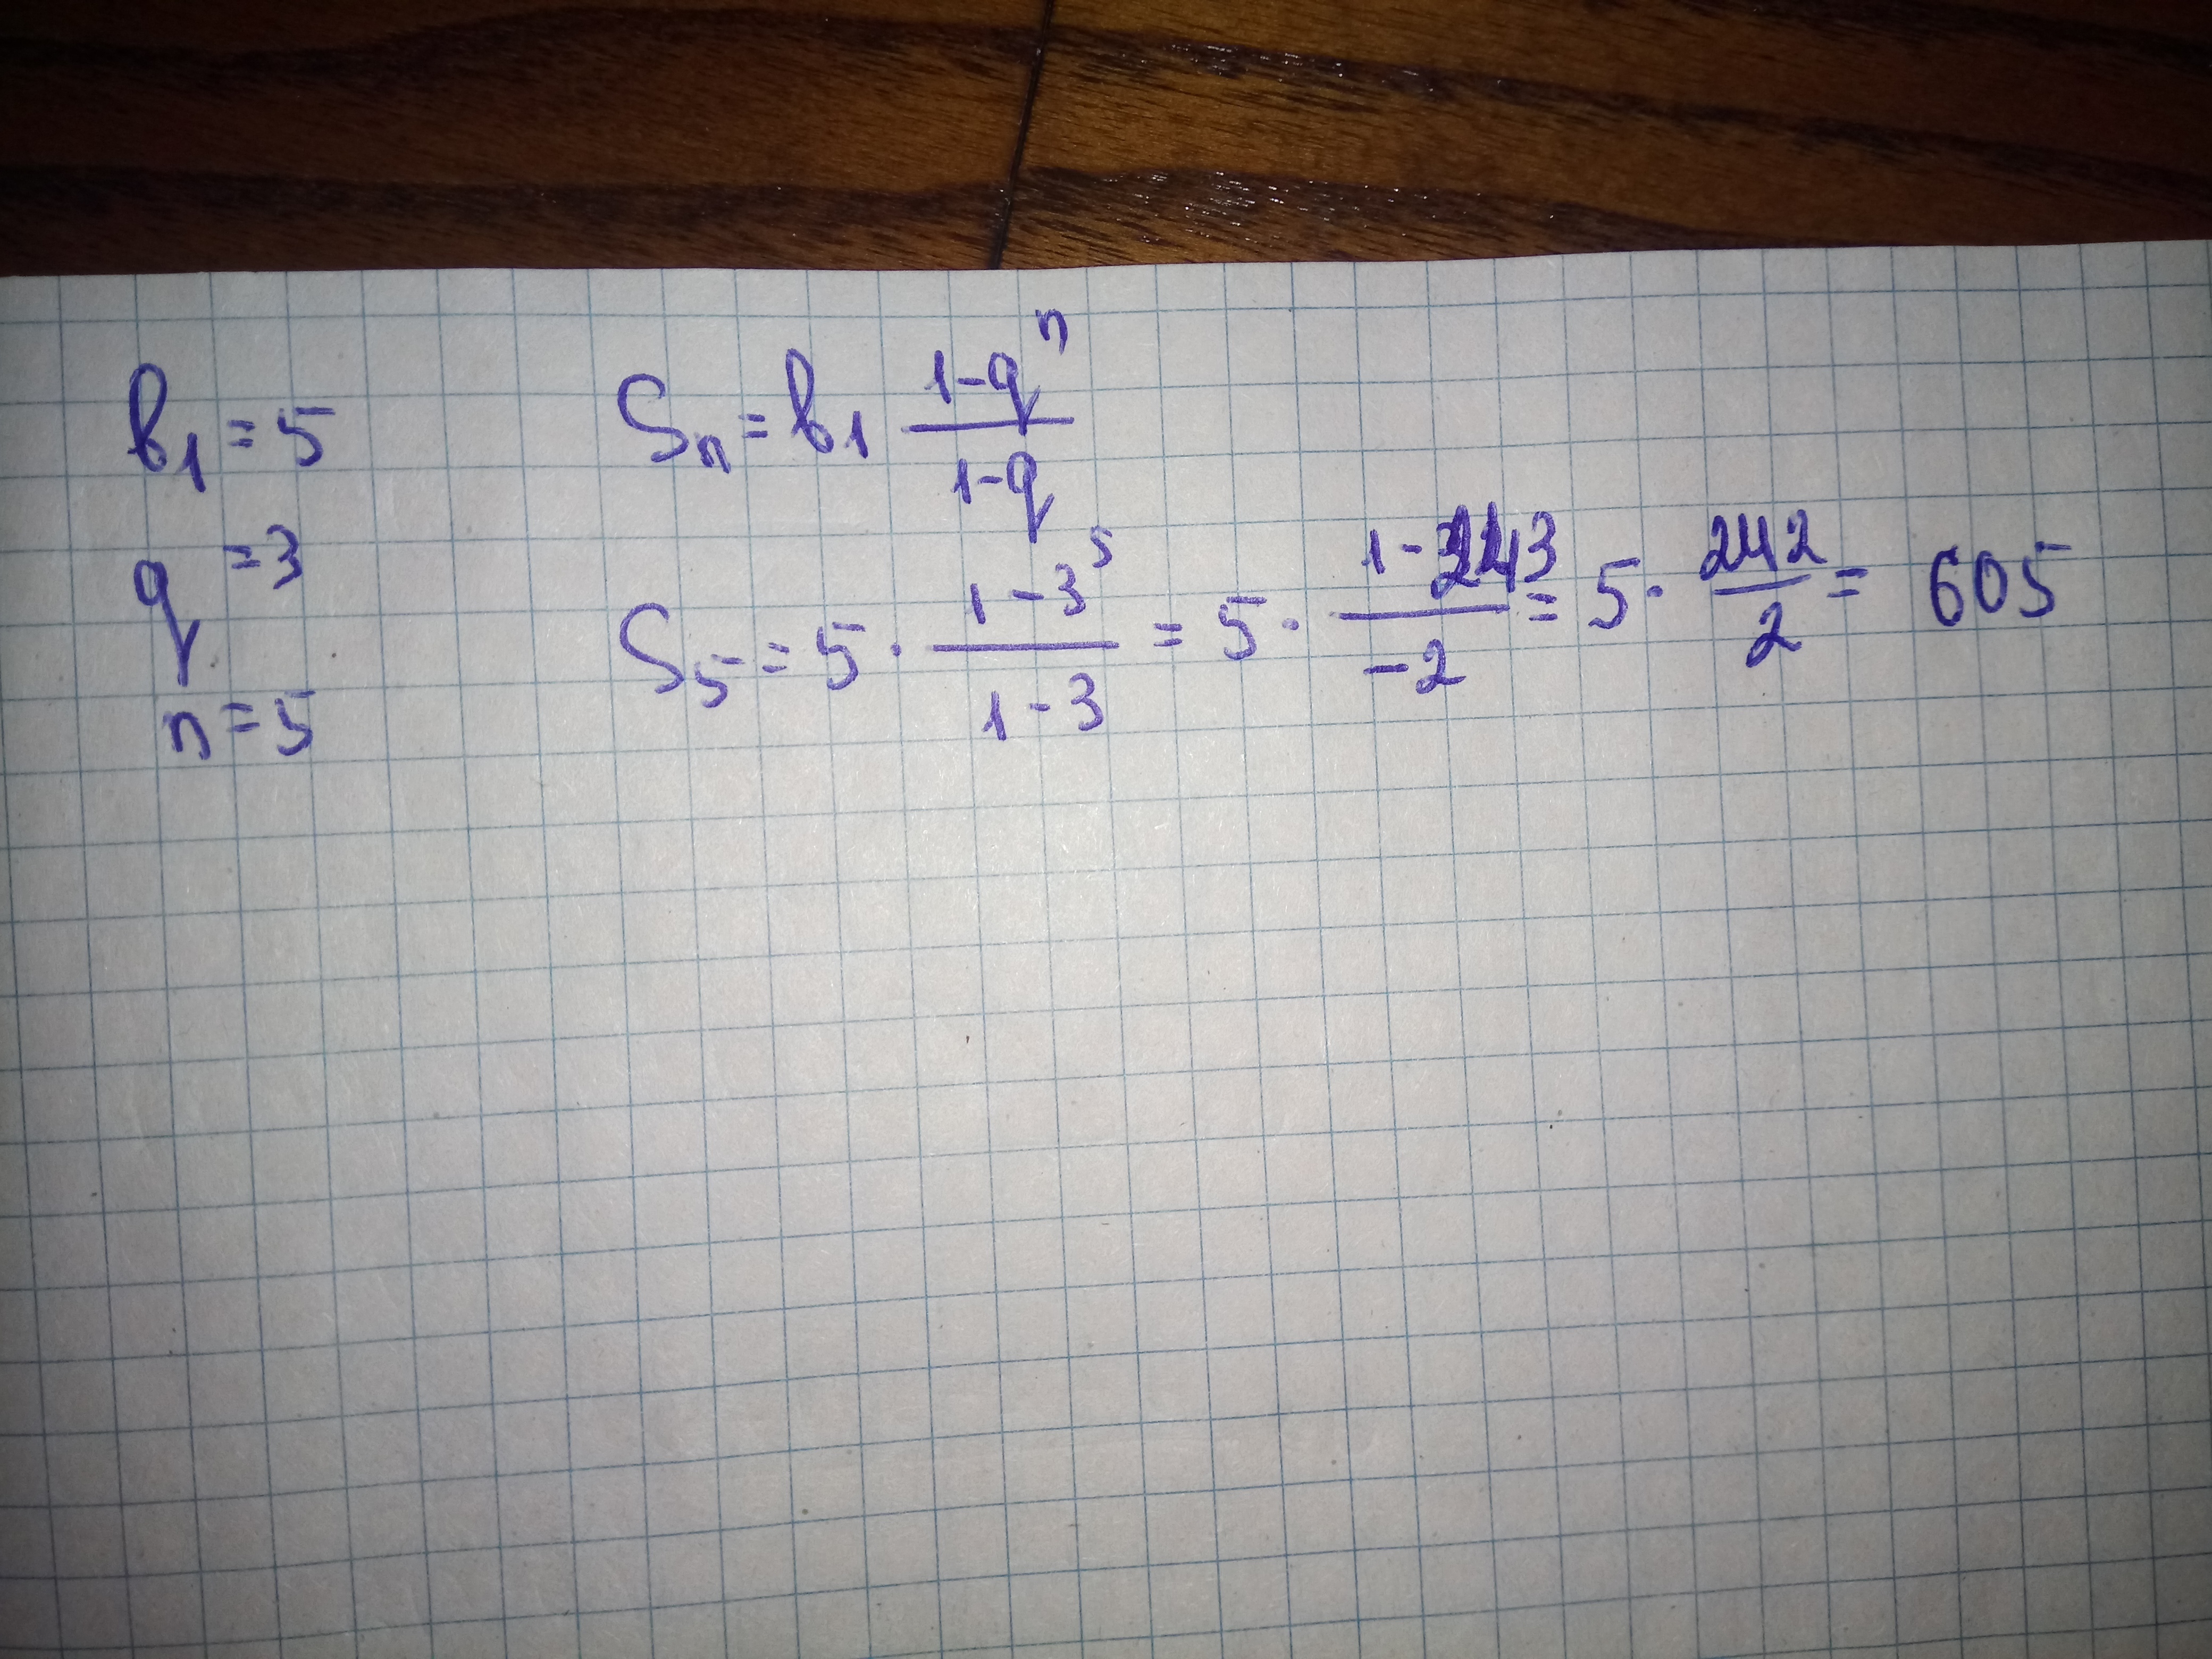 b₁ = 5
q = 3
n = 5
Sₙ = b₁ (1-qⁿ)/(1-q)
S₅ = 5 · (1-3⁵)/(1-3) = 5 · (1-243)/(-2) = 5 · 242/2 = 605